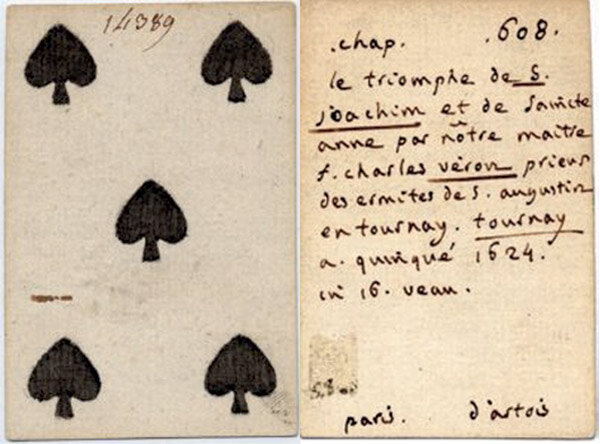 14389
.chap. .608.
le triomphe de S.
joachim et de saincte
anne par nôtre maître
f. charles véron prieur
des ermites de S. augustin
en tournay. tournay
a. quinqué 1624.
in 16. veau.
paris. d'artois